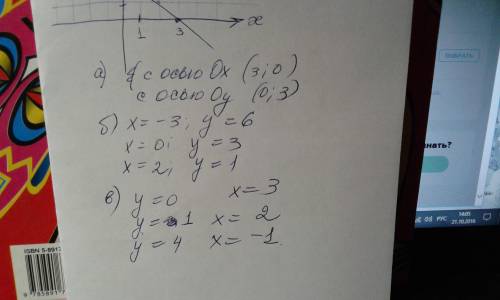 x
1 3
а) с осью Ox (3; 0)
с осью Oy (0; 3)
б) x = -3; y = 6
x = 0; y = 3
x = 2; y = 1
в) y = 0 x = 3
y = 1 x = 2
y = 4 x = -1.
ISBN 5-891
9 785891
РУС
14:05
21.10.2016